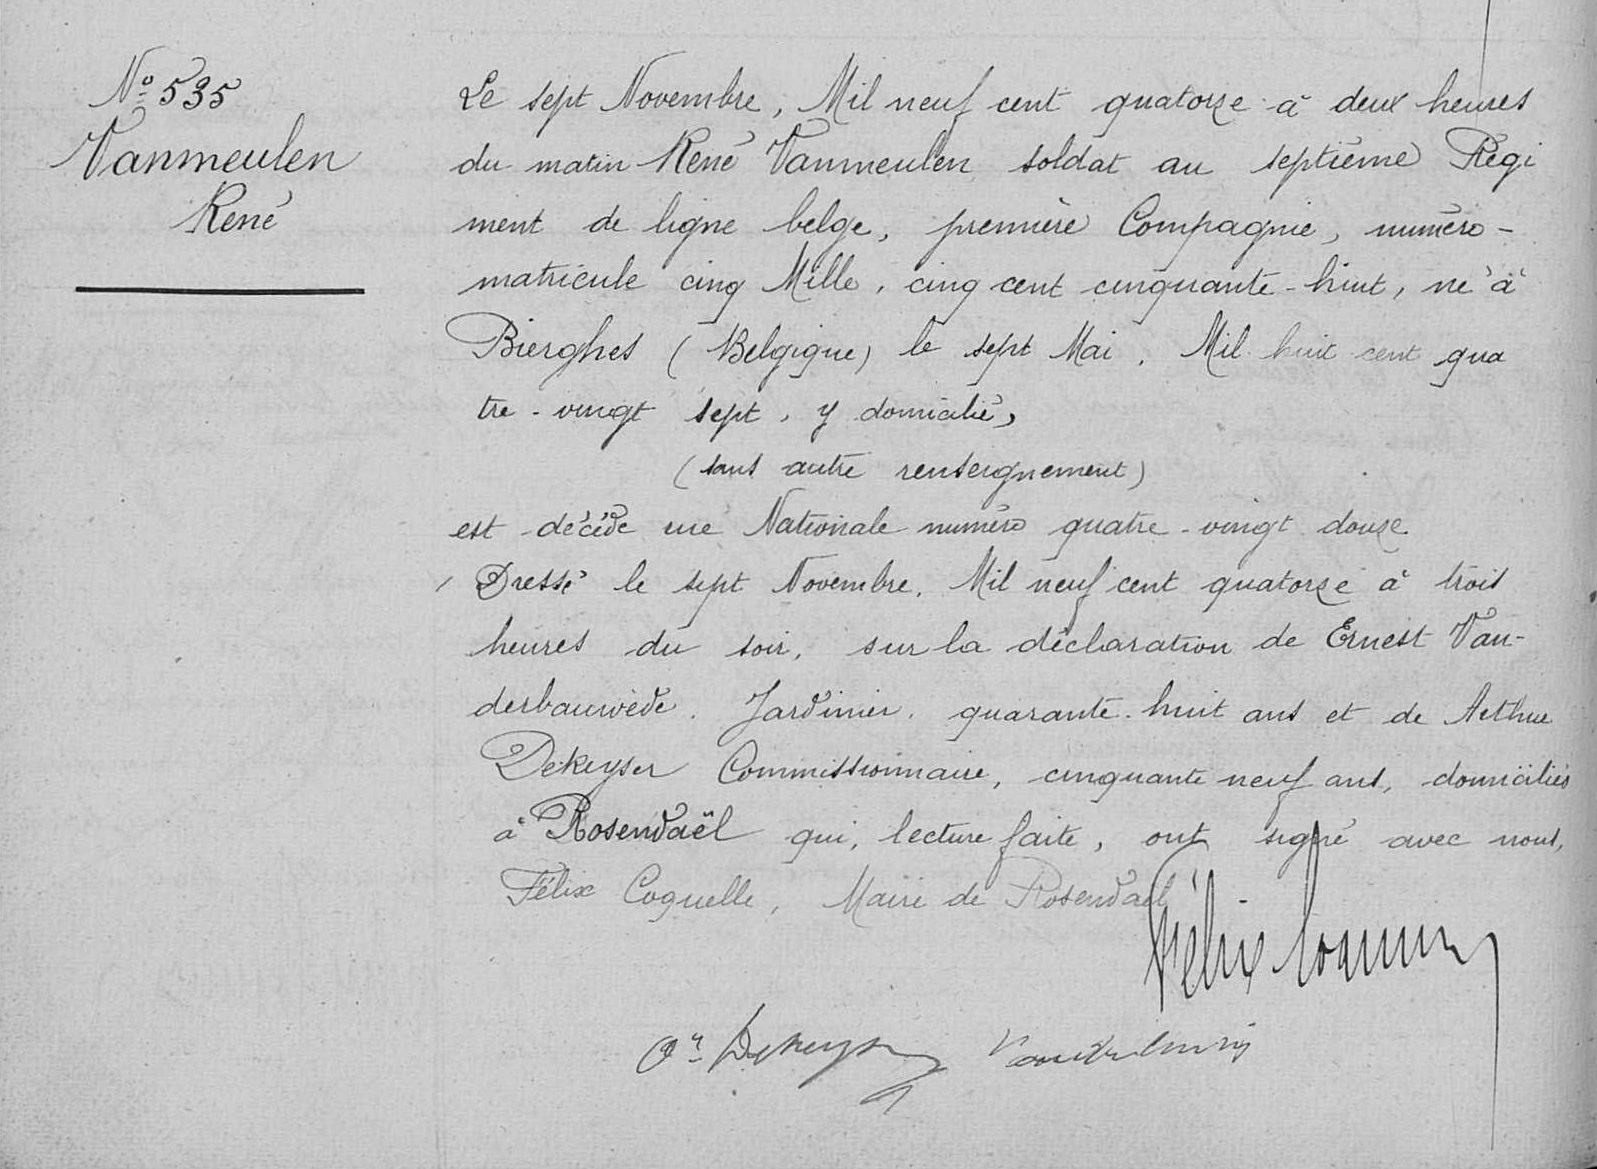 No 535
Vanmeulen
René
Le sept Novembre, Mil neuf cent quatorze à deux heures
du matin René Vanmeulen soldat au septième Régi
ment de ligne belge, première Compagnie, numéro-
matricule cinq Mille, cinq cent cinquante-huit, né à
Bierghes (Belgique) le sept Mai, Mil huit cent qua
tre-vingt sept, y domicilié,
(sans autre renseignement)
est décédé rue Nationale numéro quatre-vingt douze
Dressé le sept Novembre, Mil neuf cent quatorze à trois
heures du soir, sur la déclaration de Ernest Van-
derbauwède, Jardinier, quarante-huit ans et de Arthur
Dekeyser Commissionnaire, cinquante neuf ans, domiciliés
à Rosendaël qui, lecture faite, ont signé avec nous,
Félix Coquelle, Maire de Rosendaël
Félix
Dekeyser